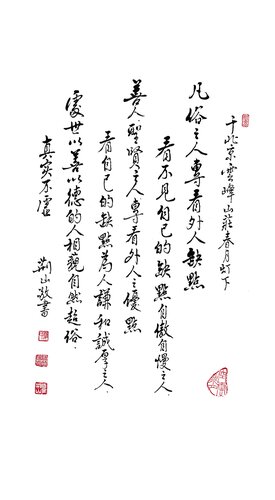 于北京雲峰山莊春月灯下
凡俗之人專看外人缺點
看不見自己的缺點自傲自慢之人.
善人聖賢之人專看外人之優點
看自己的缺點為人謙和誠厚之人.
處世以善以德的人相貌自然超俗.
真实不虛
荆山敬書